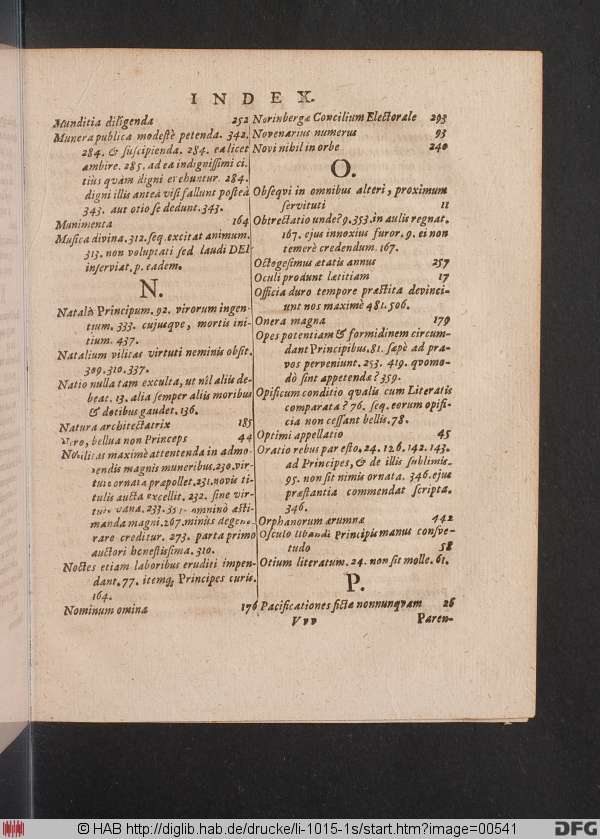 INDEX.
Munditia diligenda 252
Munera publica modestè petenda. 342.
284. & suscipienda. 284. ea licet
ambire. 285. ad ea indignissimi ci-
tius quàm digni evehuntur. 284.
digni illis anteà visi fallunt posteà
343. aut otio se dedunt. 343.
Munimenta 164
Musica divina. 312. seq. excitat animum.
313. non voluptati sed laudi DEI
inserviat, p. eadem.
N.
Natalis Principum. 92. virorum ingen-
tium. 333. cujusqve, mortis ini-
tium. 437.
Natalium vilitas virtuti neminis obsit.
309. 310. 337.
Natio nulla tam exculta, ut nil aliis de-
beat. 13. alia semper aliis moribus
& dotibus gaudet. 136.
Natura architectatrix 185
Nero, bellua non Princeps 44
Nobilitas maximè attentenda in admo-
vendis magnis muneribus. 230. vir-
tute ornata præpollet. 231. novis ti-
tulis aucta excellit. 232. sine vir-
tute vana. 233. omninò æsti-
manda magni. 267. minùs degene-
rare creditur. 273. parta primo
auctori honestissima. 310.
Noctes etiam laboribus eruditi impen-
dant. 77. itemq; Principes curis.
164.
Nominum omina 176
Norinbergæ Concilium Electorale 293
Novenarius numerus 93
Novi nihil in orbe 240
O.
Obseqvi in omnibus alteri, proximum
servituti 11
Obtrectatio unde? 9. 353. in aulis regnat.
167. ejus innoxius furor. 9. ei non
temerè credendum. 167.
Octogesimus ætatis annus 257
Oculi produnt lætitiam 17
Officia duro tempore præstita devinci-
unt nos maximè 481. 506.
Onera magna 179
Opes potentiam & formidinem circum-
dant Principibus. 81. sæpè ad pra-
vos perveniunt. 253. 419. qvomo-
dò sint appetenda? 359.
Opificum conditio qvalis cum Literatis
comparata? 76. seq. eorum opifi-
cia non cessant bellis. 78.
Optimi appellatio 45
Oratio rebus par esto. 24. 126. 142. 143.
ad Principes, & de illis sublimis.
95. non sit nimis ornata. 346. ejus
præstantia commendat scripta.
346.
Orphanorum ærumnæ 442
Osculo libandi Principis manus consve-
tudo 58
Otium literatum. 24. non sit molle. 61.
P.
Pacificationes fictæ nonnunqvam 26
Vvv Paren-
© HAB http://diglib.hab.de/drucke/li-1015-1s/start.htm?image=00541
DFG